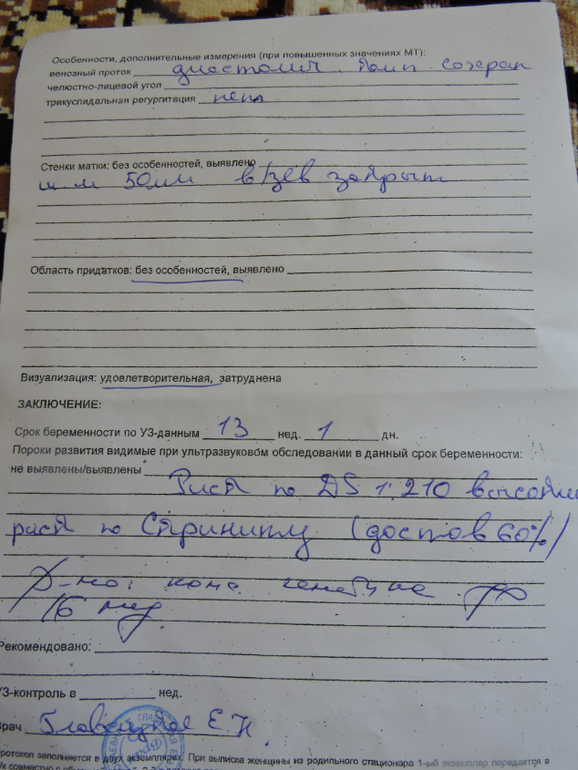 Особенности, дополнительные измерения (при повышенных значениях МТ):
венозный проток диастолич. комп сохран
челюстно-лицевой угол
трикуспидальная регургитация нет
Стенки матки: без особенностей, выявлено
ш м 50мм в/зев закрыт
Область придатков: без особенностей, выявлено
Визуализация: удовлетворительная, затруднена
ЗАКЛЮЧЕНИЕ:
Срок беременности по УЗ-данным 13 нед. 1 дн.
Пороки развития видимые при ультразвуковом обследовании в данный срок беременности:
не выявлены/выявлены
Риск по DS 1:210 высокий
риск по Скринингу (достов 60%)
Р-но: конс генетика
16 нед.
Рекомендовано:
УЗ-контроль в нед.
Врач Е.Н.
протокол заполняется в двух экземплярах. При выписке женщины из родильного стационара 1-ый экземпляр передается в